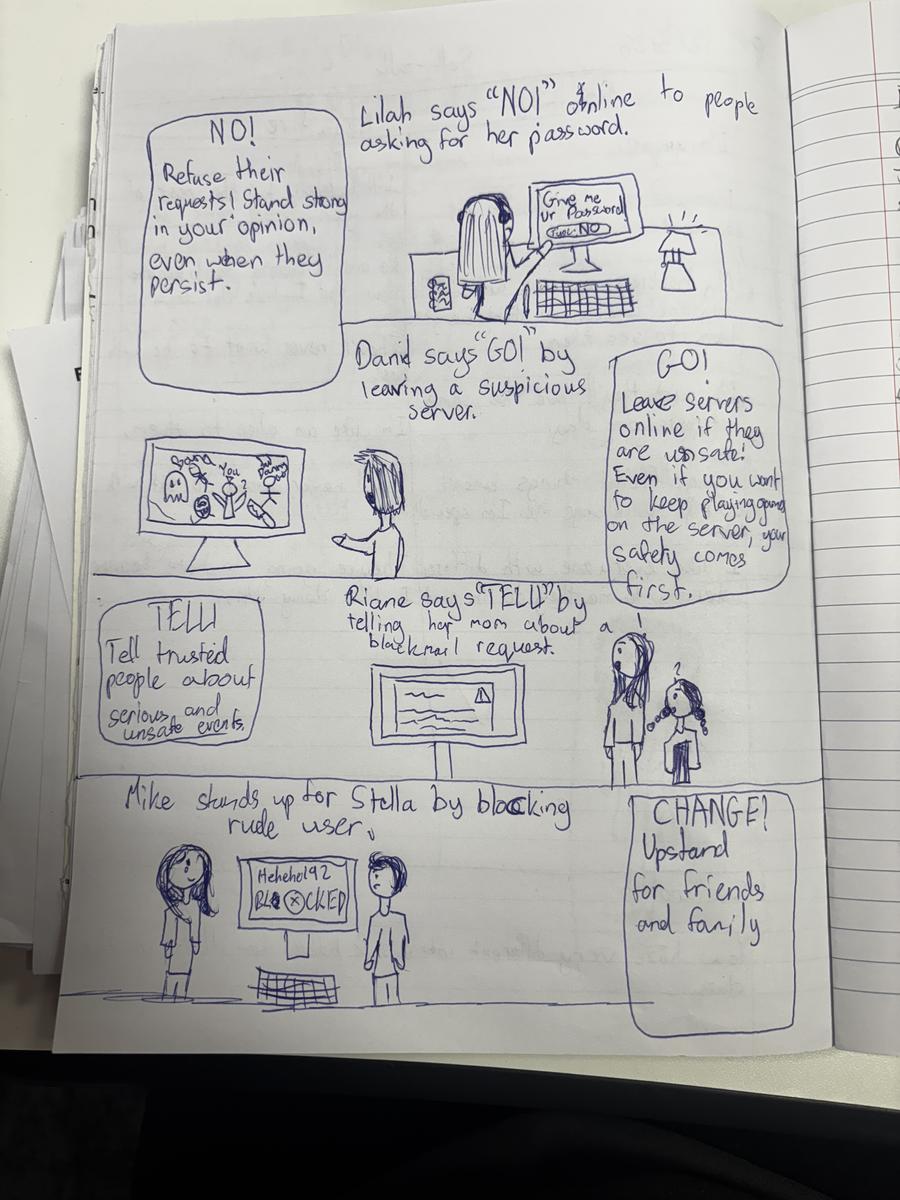 NO!
Refuse their
requests! Stand strong
in your opinion,
even when they
persist.
Lilah says "NO!" online to people
asking for her password.
Give me
ur Password
NO
David says "GO!" by
leaving a suspicious
server.
You
?
GO!
Leave servers
online if they
are unsafe!
Even if you want
to keep playing
on the server, your
safety comes
first.
TELL!
Tell trusted
people about
serious and
unsafe events.
Riane says "TELL!" by
telling her mom about a
blackmail request.
!
?
Mike stands up for Stella by blocking
rude user.
Hehehe192
BLOCKED
CHANGE!
Upstand
for friends
and family